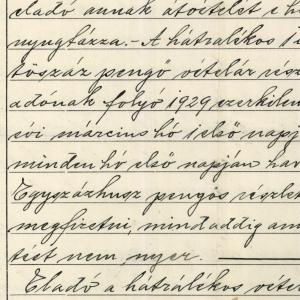 eladó annak átvételét e h
nyugtázza.- A hátralékos 12
töszáz pengő vételár rész
adónak folyó 1929 ezerkilen
évi március hó 1 első napj
minden hó első napján hav
Egyszázhusz pengős részlet
megfizetni, mindaddig am
tést nem nyer.
Eladó a hátrálékos vétel